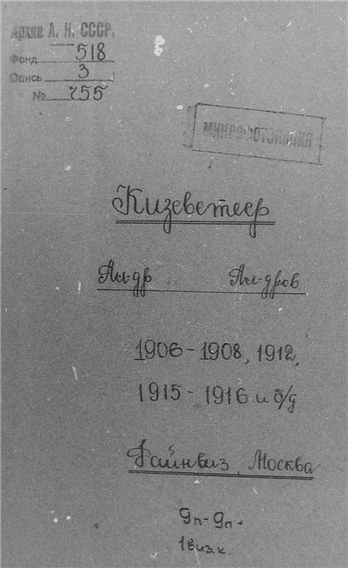 Архив А. Н. СССР.
Фонд 518
Опись 3
№ 755
МИКРОФОТОКОПИЯ
Кизеветтер
Ал-др Ал-дров
1906-1908, 1912,
1915-1916 и б/д
Файнвиз, Москва
9п-9л-
1 виз.к.